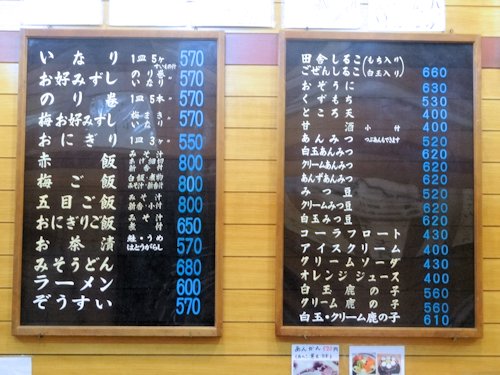 いなり 1皿5ヶ すいもの付 570
お好みずし のり巻 いなり 〃 570
のり巻 1皿5本 〃 570
梅お好みずし 梅まき いなり 〃 570
おにぎり 1皿3ヶ 〃 550
赤飯 みそ汁 新香 800
梅ご飯 800
五目ご飯 みそ汁 新香・小付 800
おにぎりご飯 みそ汁 煮付 650
お茶漬 鮭・うめ はとうがらし 570
みそうどん 680
ラーメン 600
ぞうすい 570
田舎しるこ(もち入り)
ごぜんしるこ(白玉入り) 660
おぞうに 630
くずもち 530
ところ天 400
甘酒 小付 400
あんみつ つぶあんもできます 520
白玉あんみつ 620
クリームあんみつ 620
あんずあんみつ 620
みつ豆 520
クリームみつ豆 620
白玉みつ豆 620
コーラフロート 430
アイスクリーム 400
クリームソーダ 430
オレンジジュース 400
白玉鹿の子 560
クリーム鹿の子 560
白玉・クリーム鹿の子 610